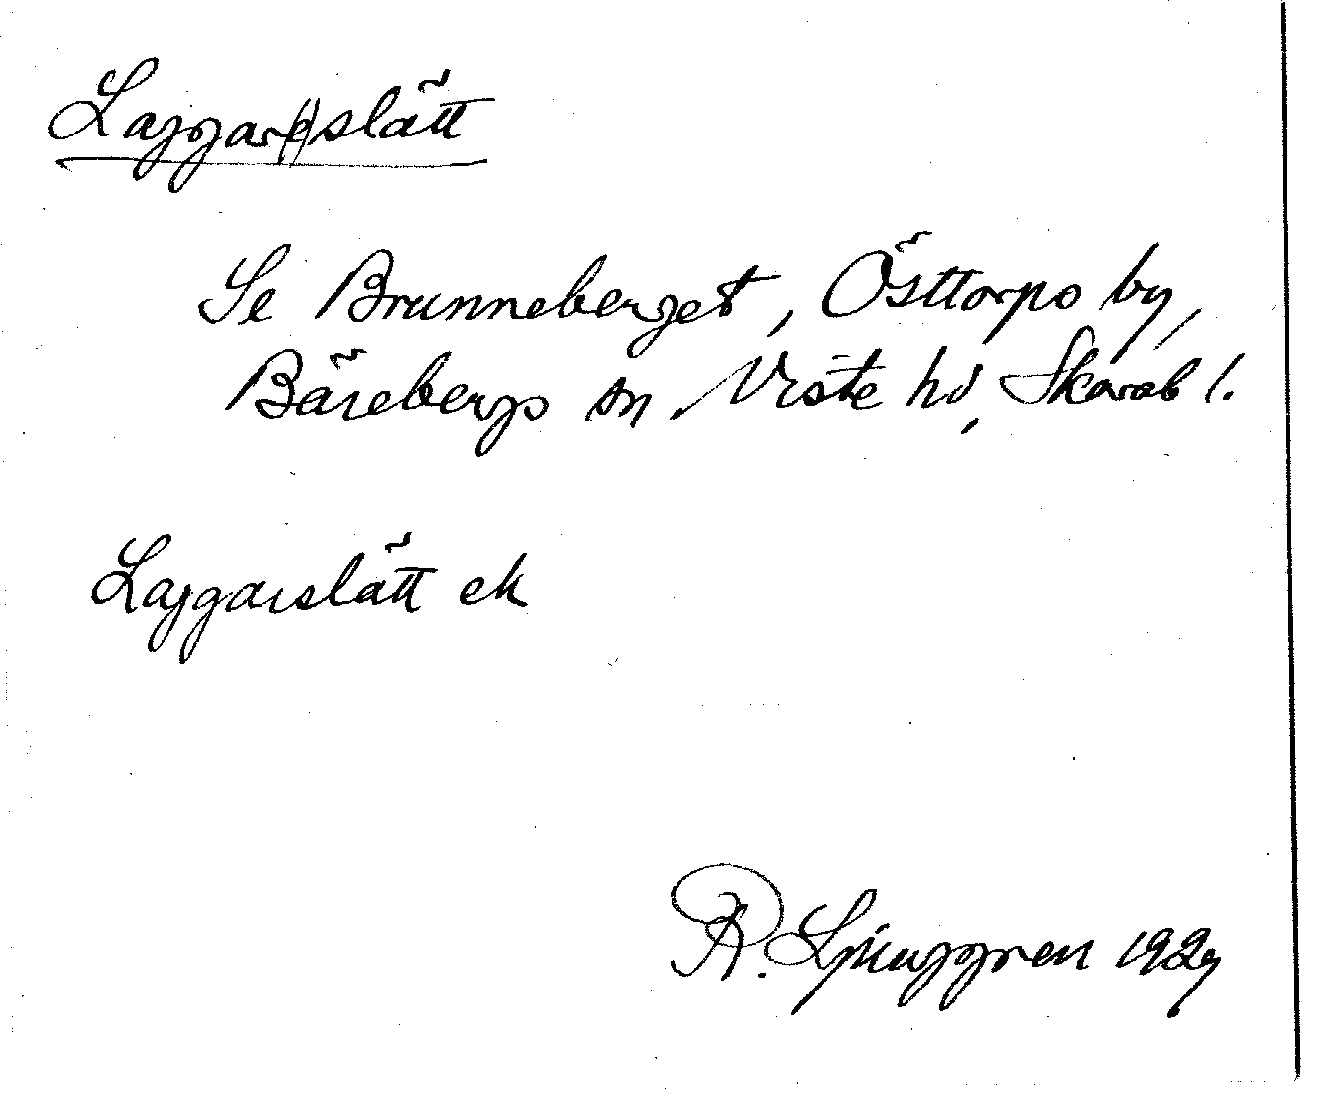 Laggar(e)slätt
Se Brunneberget, Östtorps by,
Bärebergs sn, Viste hd, Skarab l.
Laggarslätt ek
R. Ljunggren 1929